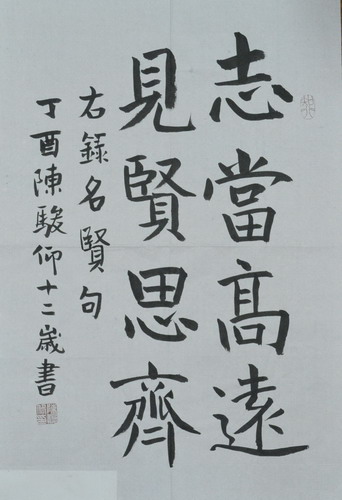 志當高遠
見賢思齊
右錄名賢句
丁酉陳駿仰十二歲書